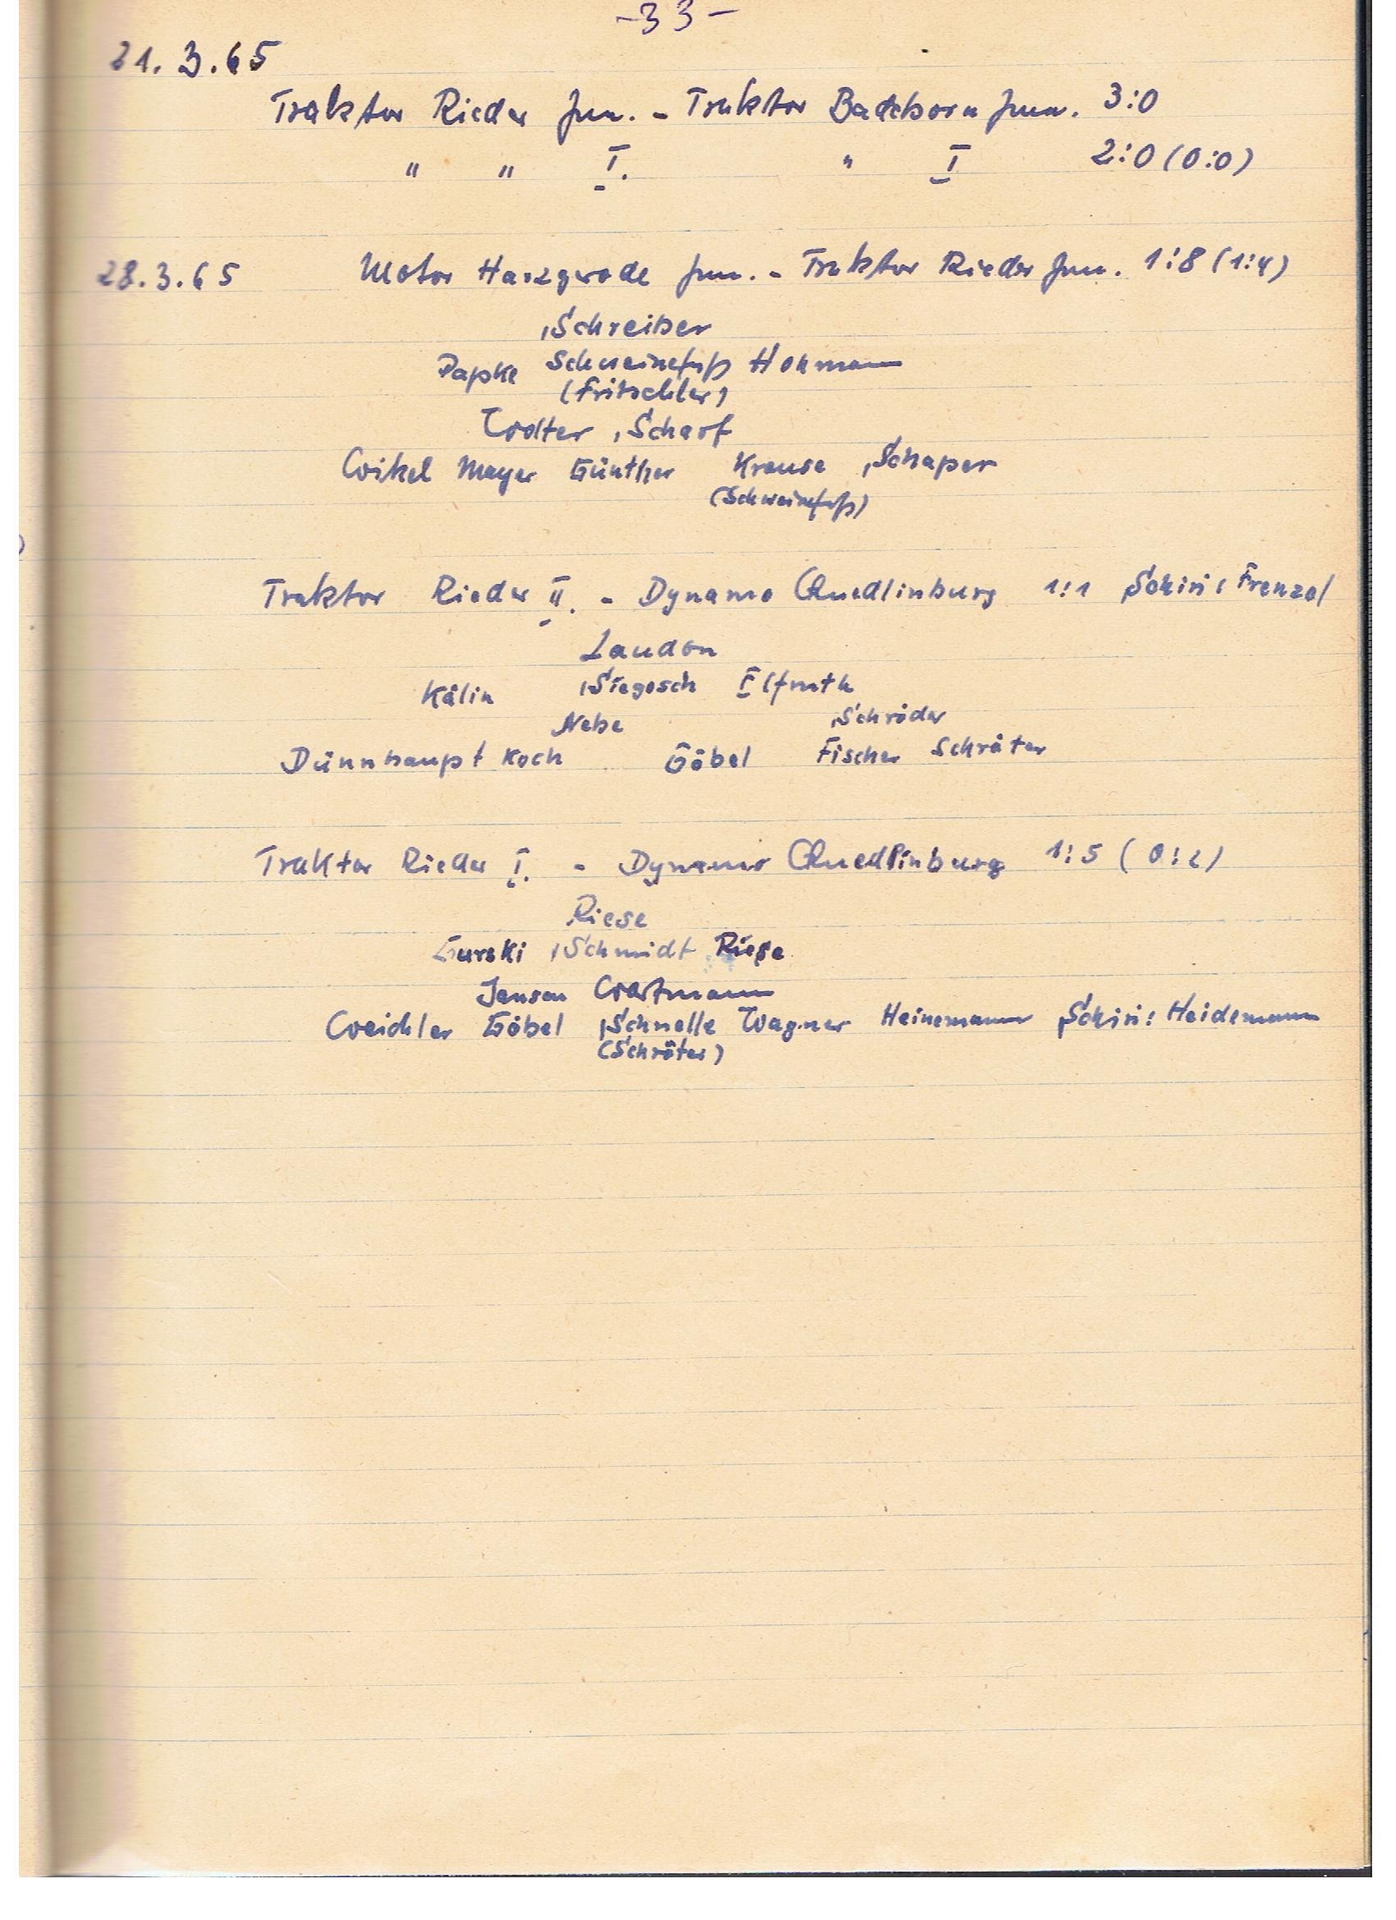 -33-
21.3.65
Traktor Rieder Jun. - Traktor Badeborn Jun. 3:0
" " I. " I 2:0 (0:0)
28.3.65 Motor Harzgerode Jun. - Traktor Rieder Jun. 1:8 (1:4)
Schreiber
Papke Schweinefuß Hohmann
(Fritschler)
Wolter Scharf
Weikel Meyer Günther Krause Schaper
(Schweinefuß)
Traktor Rieder II. - Dynamo Quedlinburg 1:1 Schiri: Frenzel
Laudon
Kälin Siegosch Illfruth
Nebe Schröder
Dünnhaupt Koch Göbel Fischer Schröter
Traktor Rieder I. - Dynamo Quedlinburg 1:5 (0:2)
Riese
Gurski Schmidt Riese
Jensen Wartmann
Weichler Göbel Schnelle Wagner Heinemann Schiri: Heidemann
(Schröter)